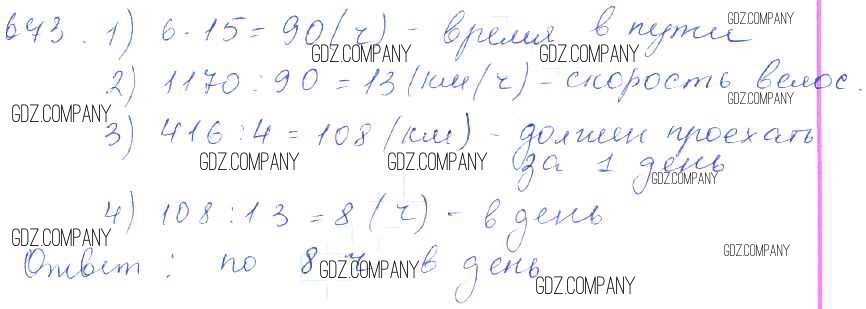 643. 1) 6 · 15 = 90 (ч) - время в пути
GDZ.COMPANY
GDZ.COMPANY GDZ.COMPANY
2) 1170 : 90 = 13 (км/ч) - скорость велос.
GDZ.COMPANY GDZ.COMPANY
3) 416 : 4 = 108 (км) - должен проехать
за 1 день
GDZ.COMPANY GDZ.COMPANY GDZ.COMPANY
4) 108 : 13 = 8 (ч) - в день
GDZ.COMPANY
Ответ: по 8 ч в день
GDZ.COMPANY GDZ.COMPANY
GDZ.COMPANY